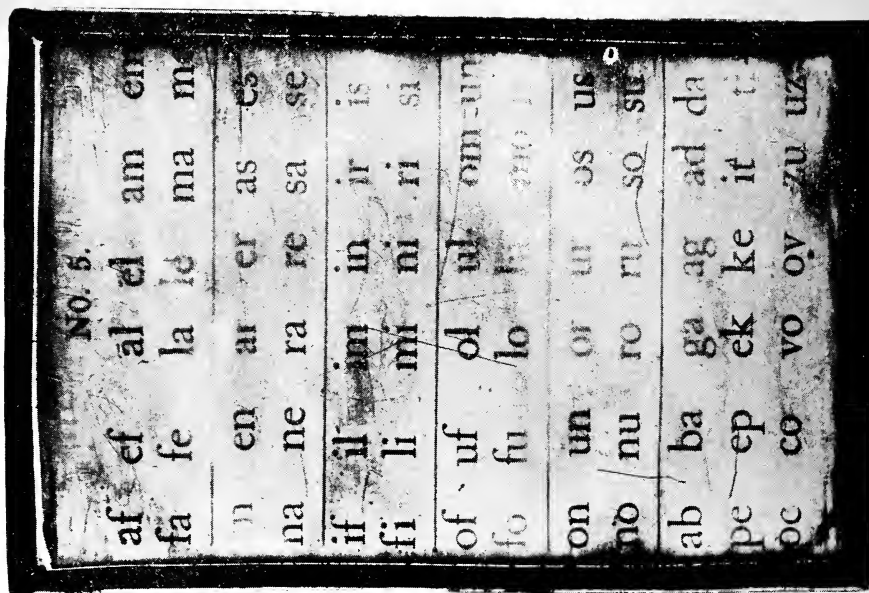 NO. 5.
af ef al el am
fa fe la le ma
en ar er as es
na ne ra re sa se
if il im in ir is
fi li mi ni ri si
of uf ol ul om um
fo fu lo
on un or ur os us
no nu ro ru so su
ab ba ga ag ad da
pe ep ek ke it
oc co vo ov zu uz